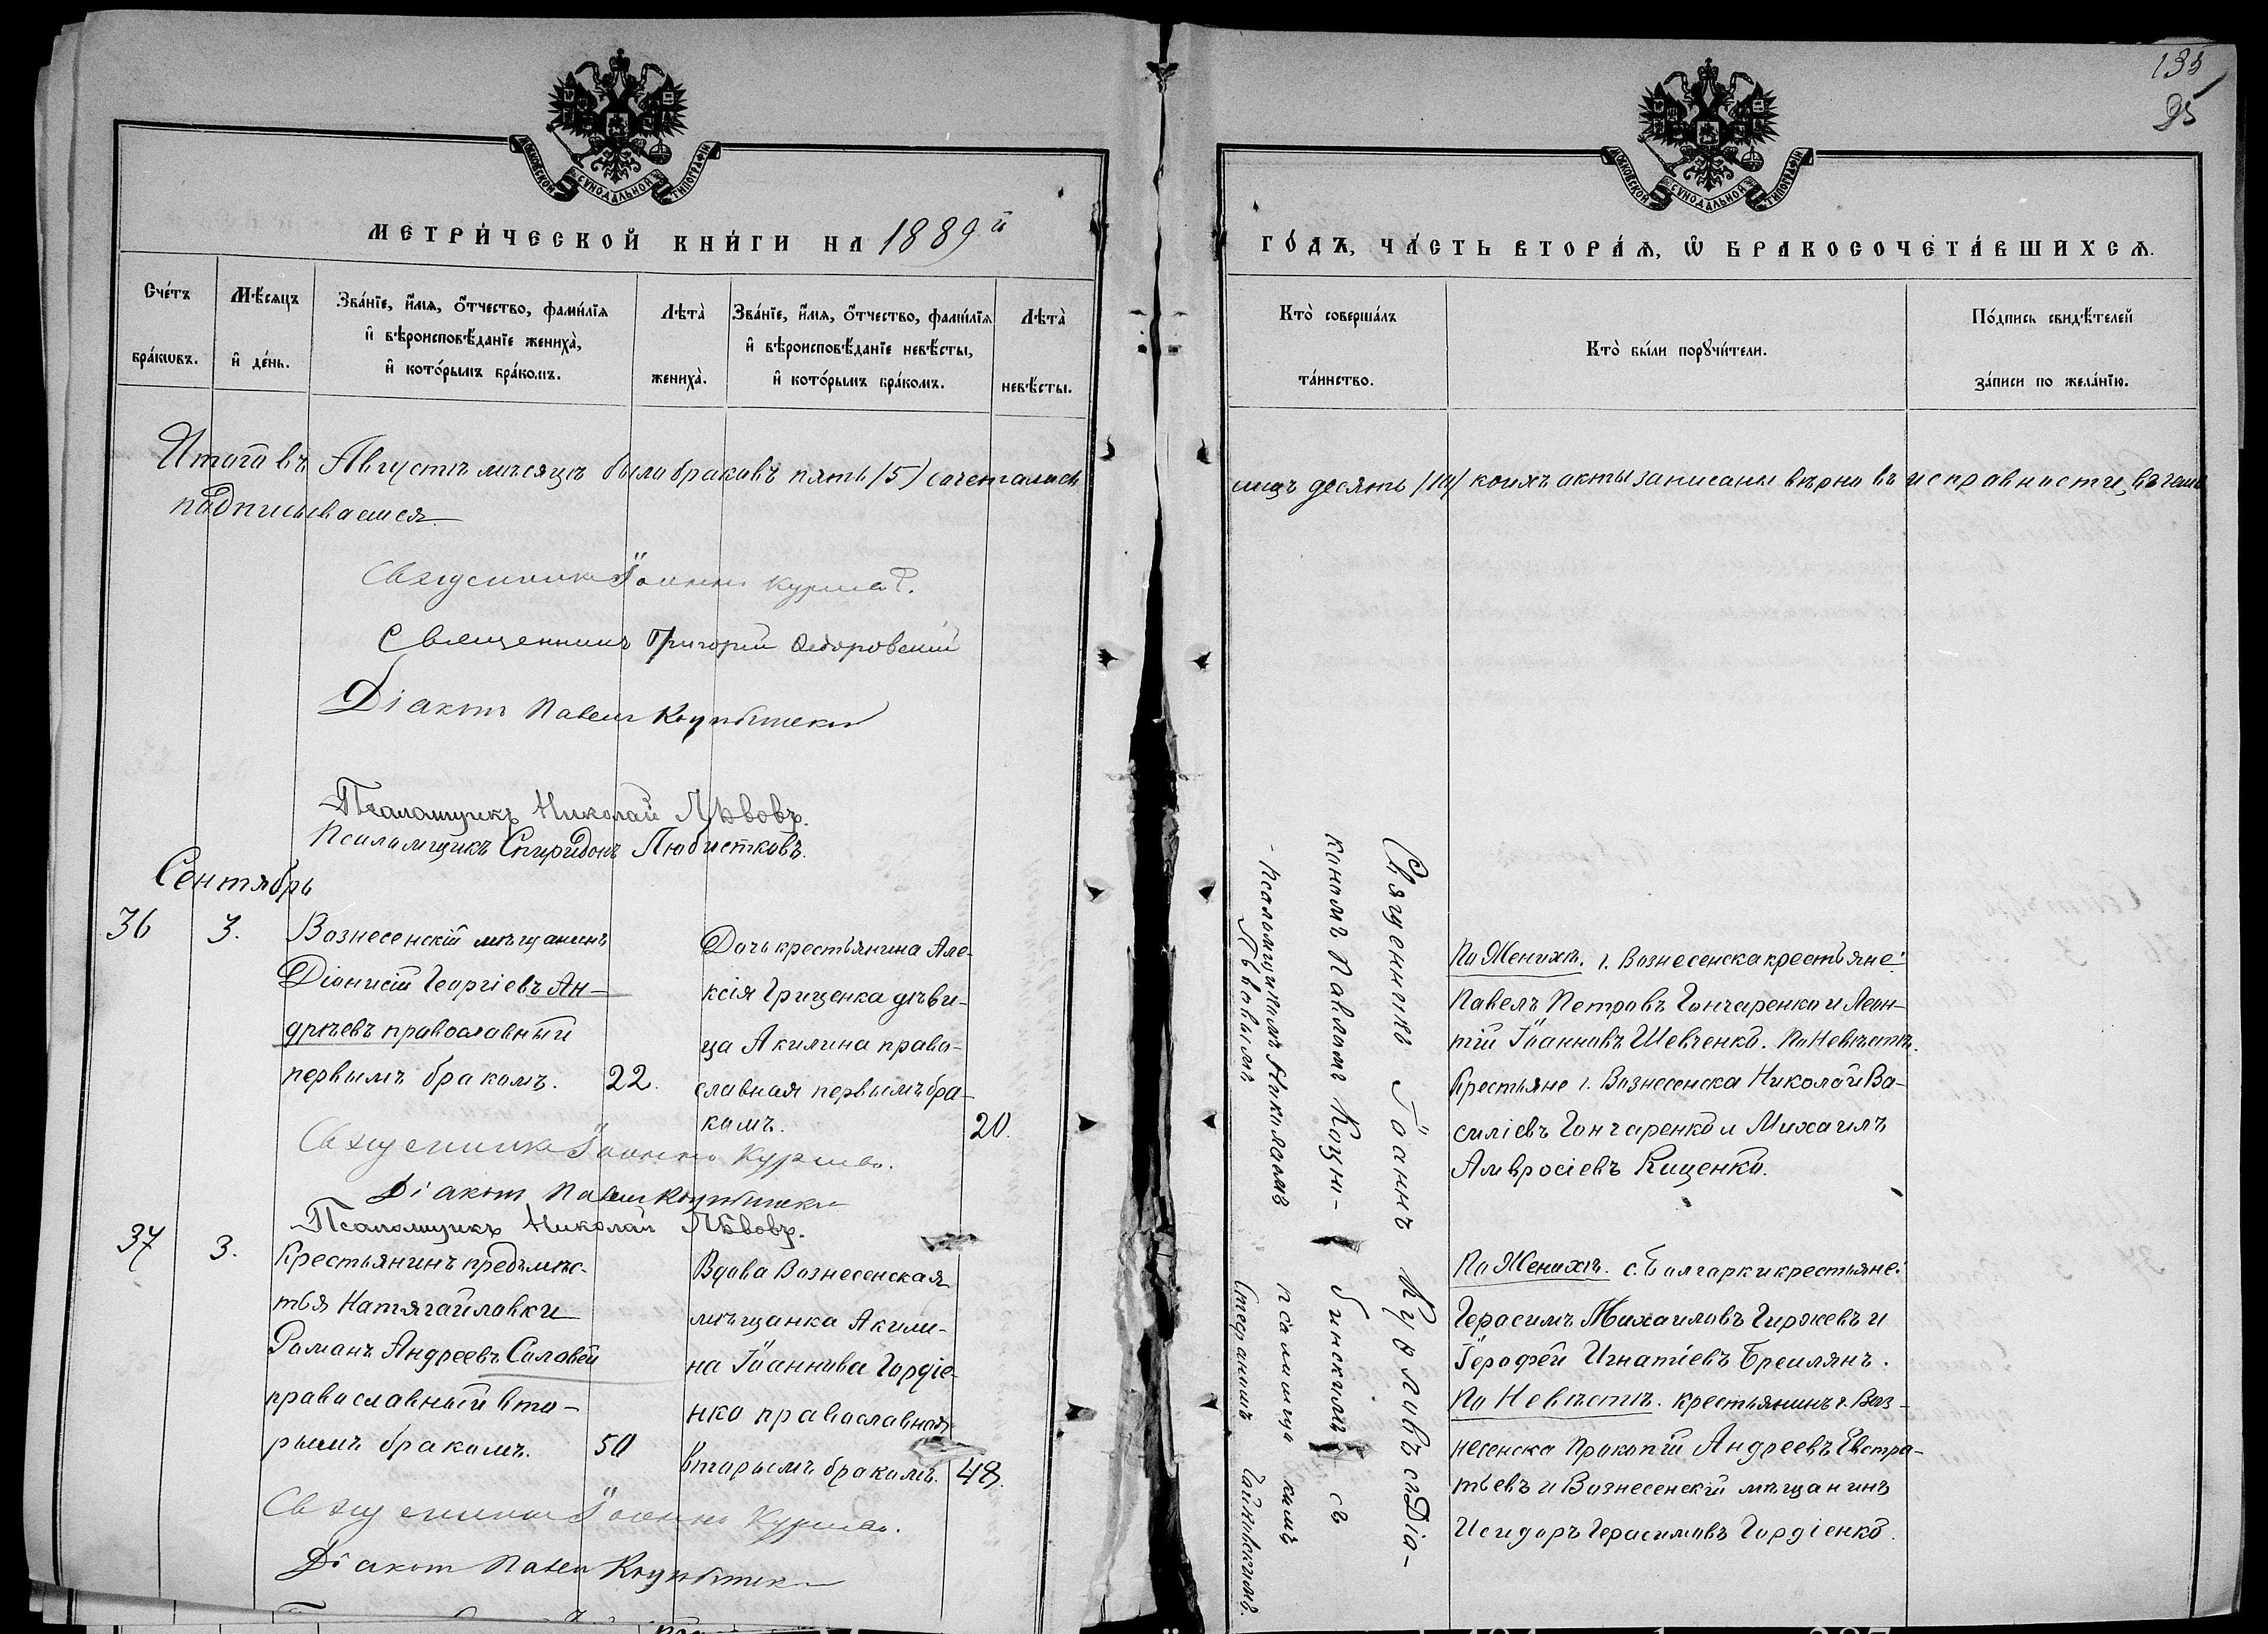 135
95
МОСКОВСКОЙ СѴНОДАЛЬНОЙ ТИПОГРАФІИ
МЕТРИ́ЧЕСКОЙ КНИ́ГИ НА 1889й
Сче́тъ бра́кѡвъ.
Мѣ́сяцъ и҆ де́нь.
Зва́нїе, и҆́мѧ, ѻ҆́тчество, фами́лїѧ
и҆ вѣроисповѣ́данїе жениха̀,
и҆ кото́рымъ бра́комъ.
Лѣта̀ жениха̀.
Зва́нїе, и҆́мѧ, ѻ҆́тчество, фами́лїѧ
и҆ вѣроисповѣ́данїе невѣ́сты,
и҆ кото́рымъ бра́комъ.
Лѣта̀ невѣ́сты.
Итого въ Августѣ мѣсяцѣ было браковъ пять /5/ сочеталось
подписываемся
Священникъ Іоаннъ
Священникъ Григорій Ѳедоровскій
Діаконъ Павелъ
Псаломщикъ Николай Львовъ.
Псаломщикъ Спиридонъ Любистковъ.
Сентябрь
36
3.
Вознесенскій мѣщанинъ
Діонисій Георгіевъ Ан-
дрѣевъ православный
первымъ бракомъ.
22.
Дочь крестьянина Але-
ксія Гриценка дѣви-
ца Акилина право-
славная первымъ бра-
комъ.
20.
Священникъ Іоаннъ
Діаконъ Павелъ
Псаломщикъ Николай Львовъ.
37
3.
Крестьянинъ предъмѣс-
тья Натягайловки
Романъ Андреевъ Соловей
православный вто-
рымъ бракомъ.
50
Вдова Вознесенская
мѣщанка Акили-
на Іоаннова Гордіе-
нко православная
вторымъ бракомъ.
48.
Священникъ Іоаннъ
Діаконъ Павелъ
МОСКОВСКОЙ СѴНОДАЛЬНОЙ ТИПОГРАФІИ
ГО́ДЪ, ЧА́СТЬ ВТОРА́Ѧ, Ѡ҆ БРАКОСОЧЕТА́ВШИХСѦ.
Кто̀ соверша́лъ
та́инство.
Кто̀ бы́ли порꙋчи́тели.
По́дпись свидѣ́телей
за́писи по жела́нїю.
лицъ десять /10/ коихъ акты записаны вѣрно въ исправности, въ чемъ
Священникъ Іоаннъ Курловъ съ Діа-
кономъ Павломъ Коцю-
бинскимъ съ
- Псаломщикомъ Николаемъ
Львовымъ
псаломщикомъ
Стефаномъ
По Женихѣ. г. Вознесенска крестьяне:
Павелъ Петровъ Гончаренко и Леон-
тій Іоанновъ Шевченко. По Невѣстѣ.
Крестьяне г. Вознесенска Николай Ва-
силіевъ Гончаренко и Михаилъ
Амвросіевъ Кищенко.
По Женихѣ. с. Болгарки крестьяне:
Герасимъ Михаиловъ Гиржевъ и
Іерофей Игнатіевъ Бреилянъ.
По Невѣстѣ. крестьянинъ г. Воз-
несенска Прокопій Андреевъ Евстра-
тьевъ и Вознесенскій мѣщанинъ
Исидоръ Герасимовъ Гордіенко.